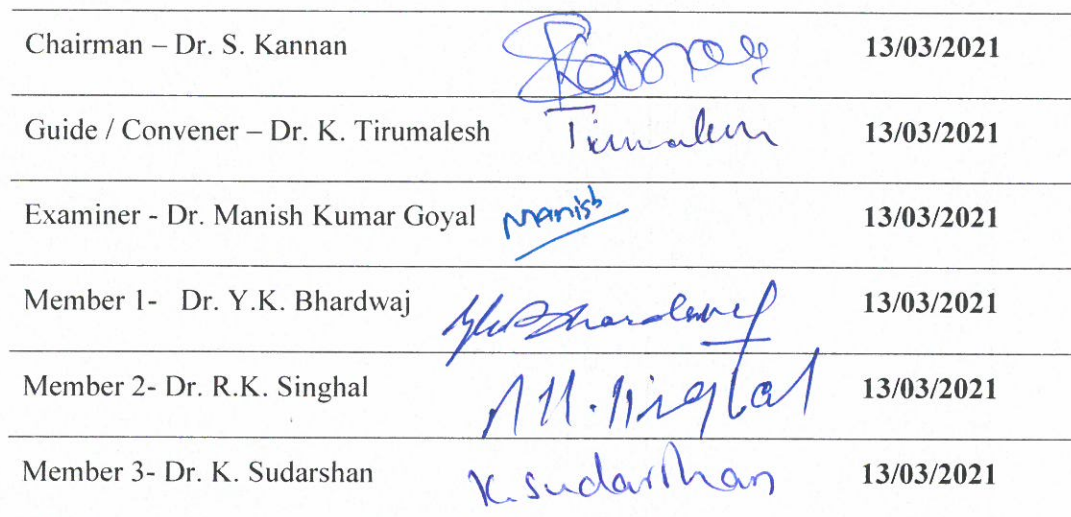 Chairman – Dr. S. Kannan 13/03/2021
Guide / Convener – Dr. K. Tirumalesh Tirumalesh 13/03/2021
Examiner - Dr. Manish Kumar Goyal Manish 13/03/2021
Member 1- Dr. Y.K. Bhardwaj YKBharadwaj 13/03/2021
Member 2- Dr. R.K. Singhal R.K.Singhal 13/03/2021
Member 3- Dr. K. Sudarshan K.Sudarshan 13/03/2021